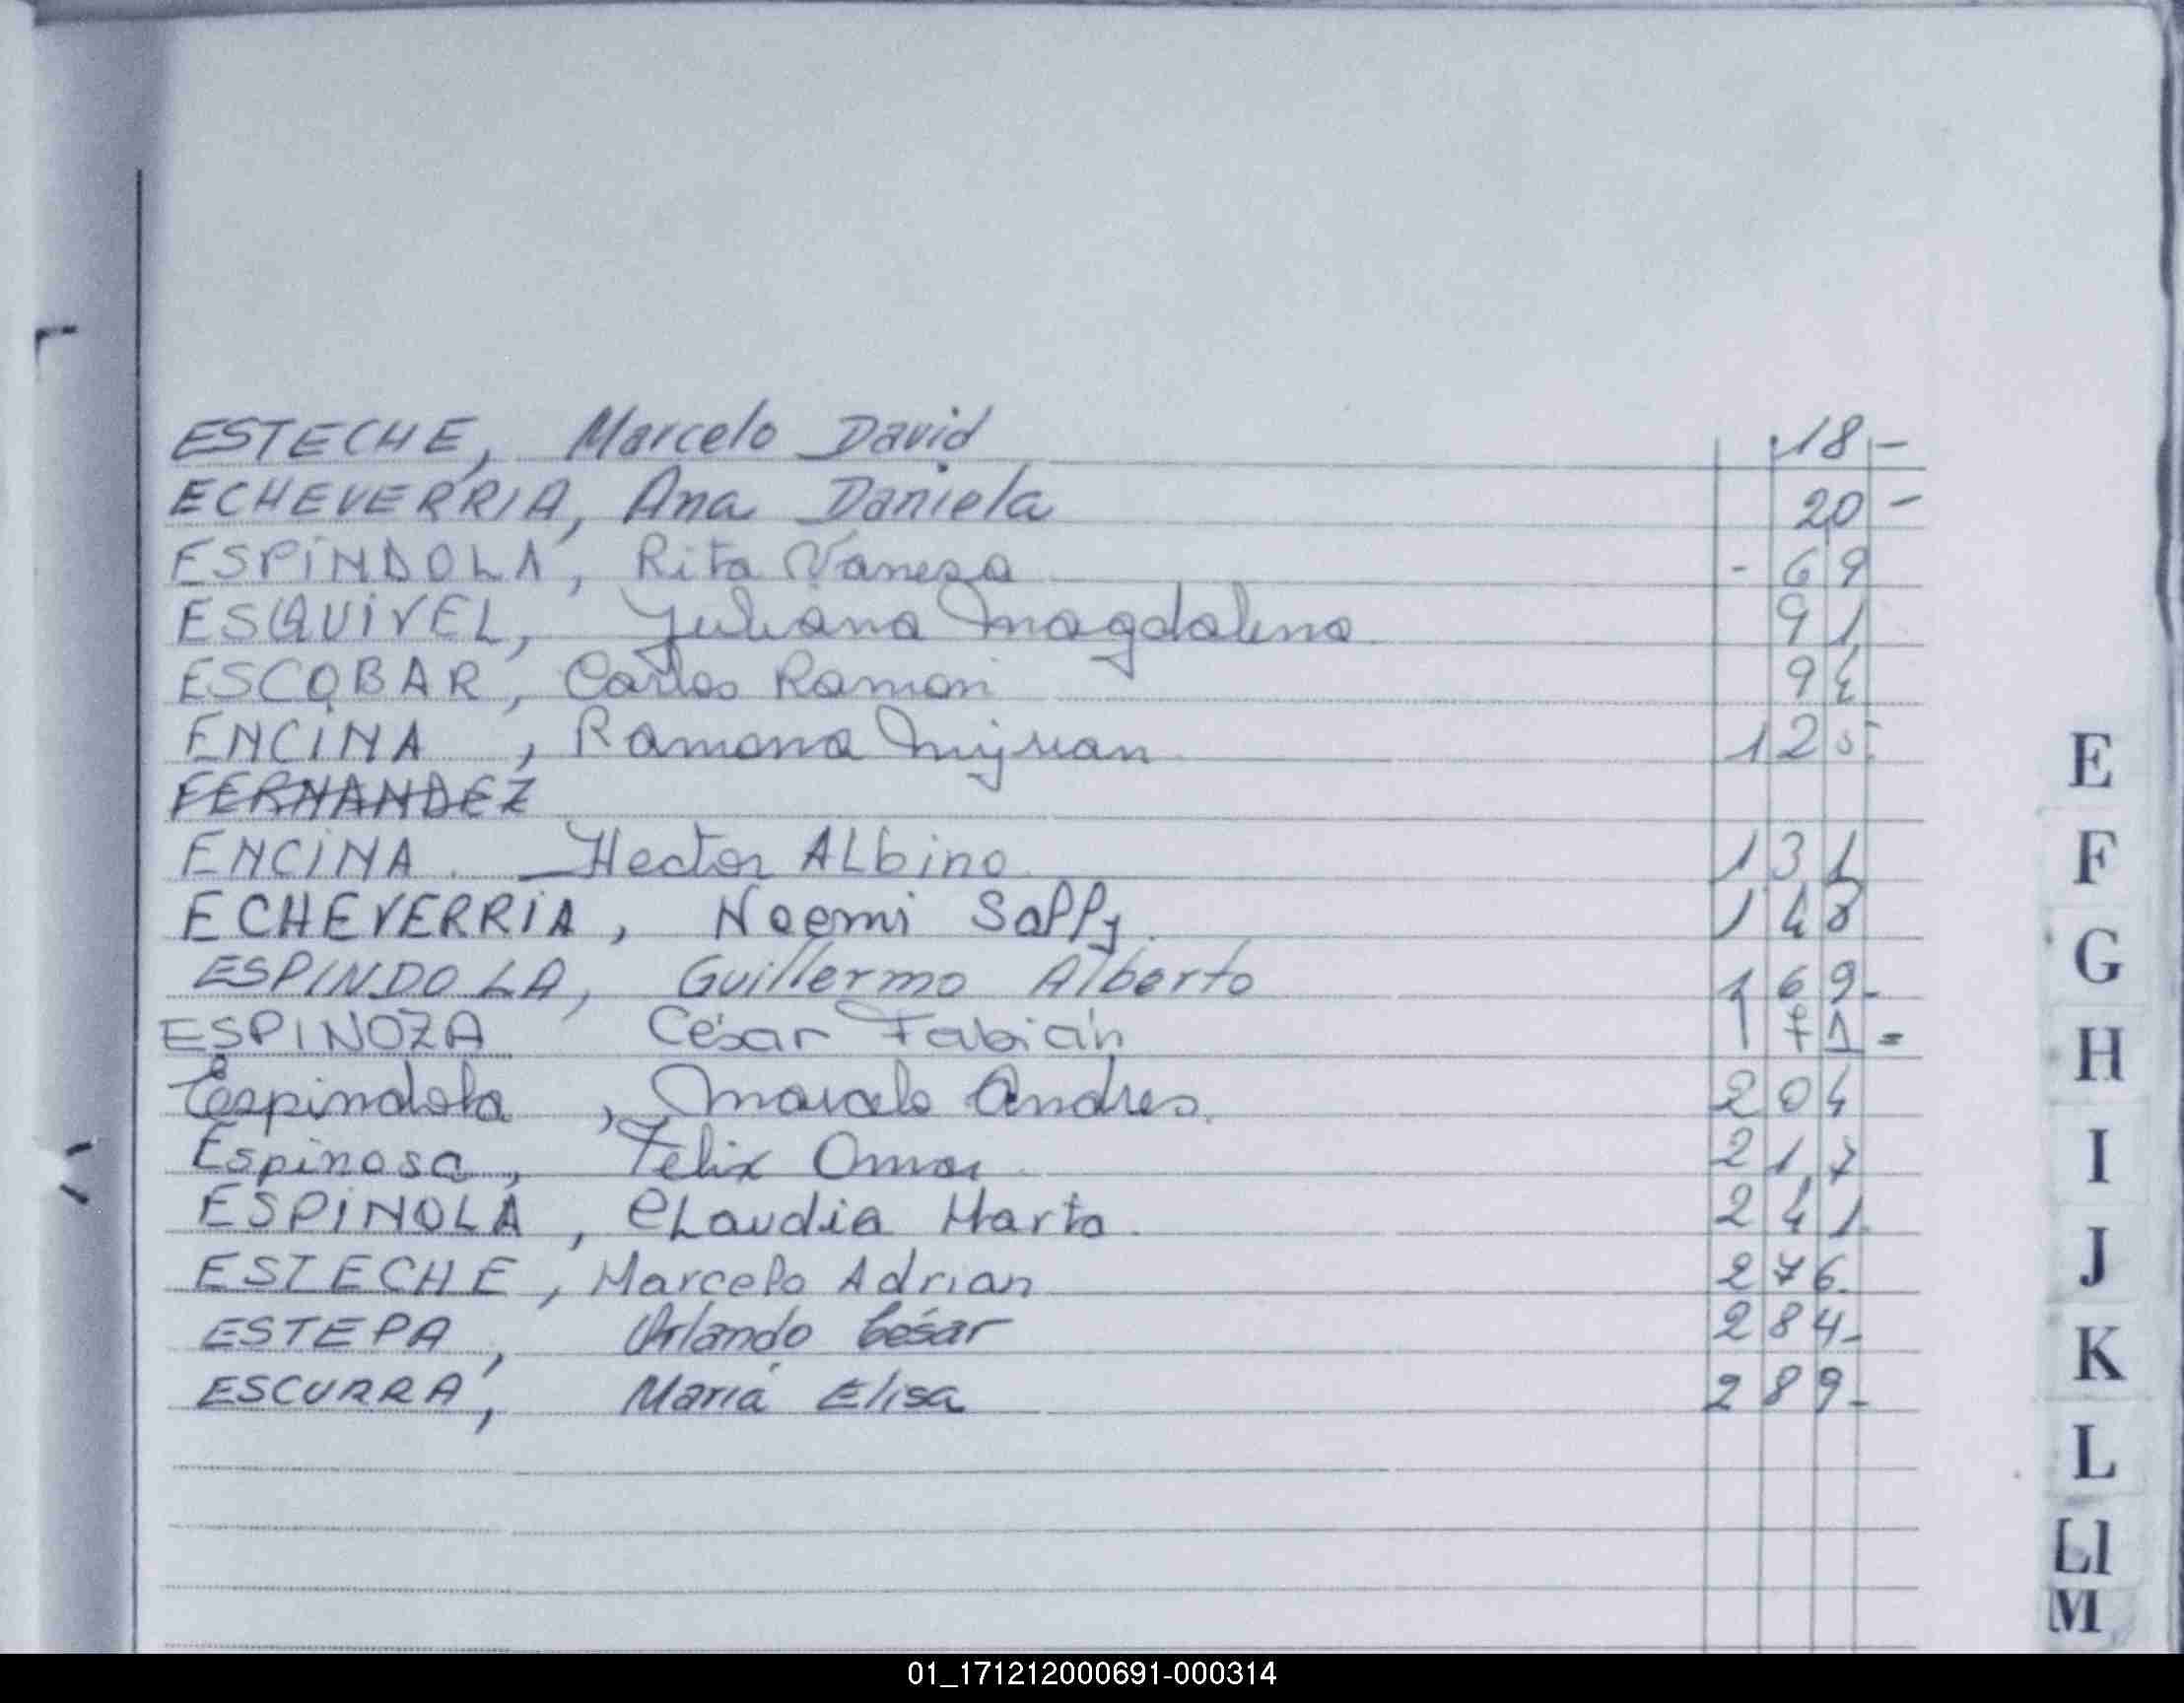 ESTECHE, Marcelo David 18-
ECHEVERRIA, Ana Daniela 20-
ESPÍNDOLA, Rita Vanesa - 69
ESQUIVEL, Juliana Magdalena 91
ESCOBAR, Carlos Ramon 94
ENCINA, Ramona 125
FERNANDEZ
ENCINA. Hector ALbino 131
ECHEVERRIA, Noemi 148
ESPINDOLA, Guillermo Alberto 169-
ESPINOZA César Fabián 171=
Espindola, Marcelo Andres. 204
Espinosa, Felix Omar 217
ESPINOLA, CLaudia Marta. 241
ESTECHE, Marcelo Adrian 276.
ESTEPA, Orlando César 284-
ESCURRA, María Elisa 289-
E
F
G
H
I
J
K
L
Ll
M
01_171212000691-000314